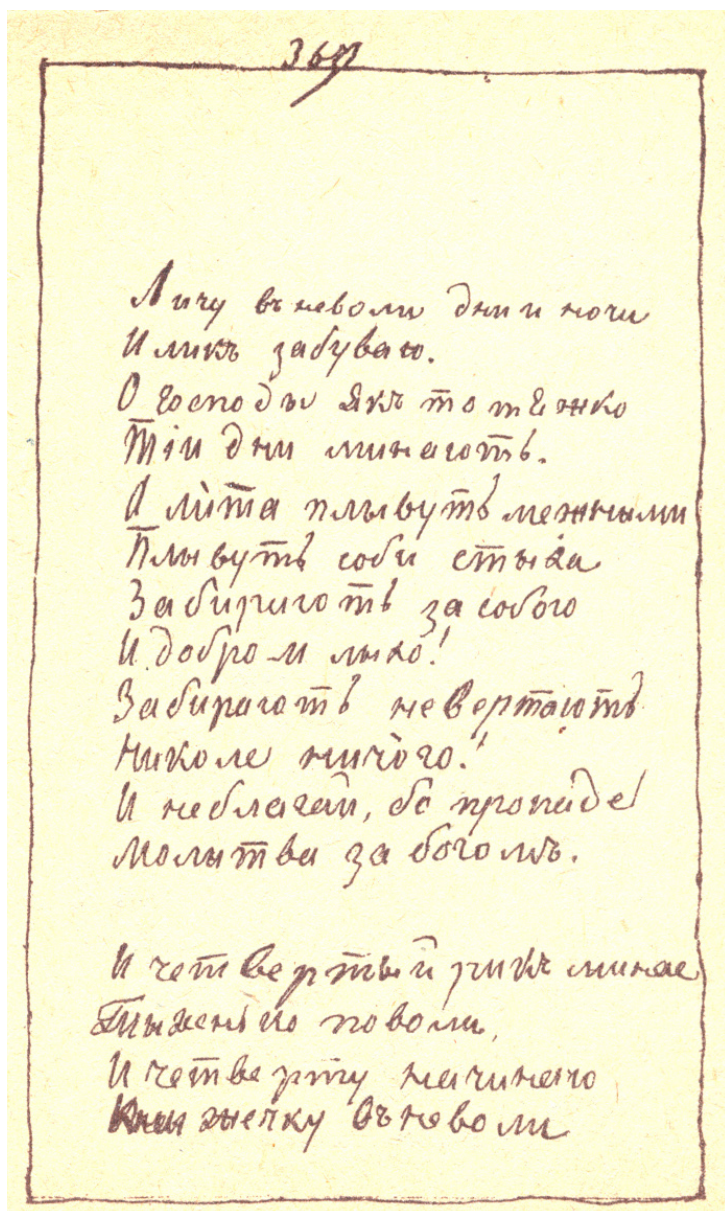 367
Личу въ неволи дни и ночи
И ликъ забуваю.
О Господы якъ то тяжко
Тіи дни минають.
А лита плывуть межными
Плывуть соби стыха
Забирають за собою
И добро и лыхо!
Забирають невертають
Николе ничого!
И неблагай, бо пропаде
Молытва за богомъ.
И четвертый рикъ минае
Тыхенько поволи,
И четверту начинаю
Книжечку въ неволи